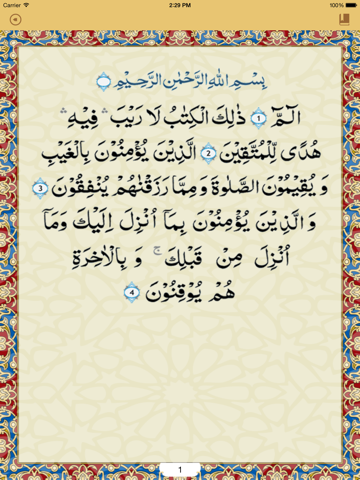 Carrier 2:29 PM 100%
بِسْمِ اللهِ الرَّحْمٰنِ الرَّحِيْمِ
الٓمّٓ ۚ 1 ذٰلِكَ الْكِتٰبُ لَا رَيْبَ ۛ فِيْهِ ۛ
هُدًى لِّلْمُتَّقِيْنَ 2 الَّذِيْنَ يُؤْمِنُوْنَ بِالْغَيْبِ
وَ يُقِيْمُوْنَ الصَّلٰوةَ وَ مِمَّا رَزَقْنٰهُمْ يُنْفِقُوْنَ 3
وَ الَّذِيْنَ يُؤْمِنُوْنَ بِمَاۤ اُنْزِلَ اِلَيْكَ وَمَاۤ
اُنْزِلَ مِنْ قَبْلِكَ ۚ وَ بِالْاٰخِرَةِ
هُمْ يُوْقِنُوْنَ 4
1